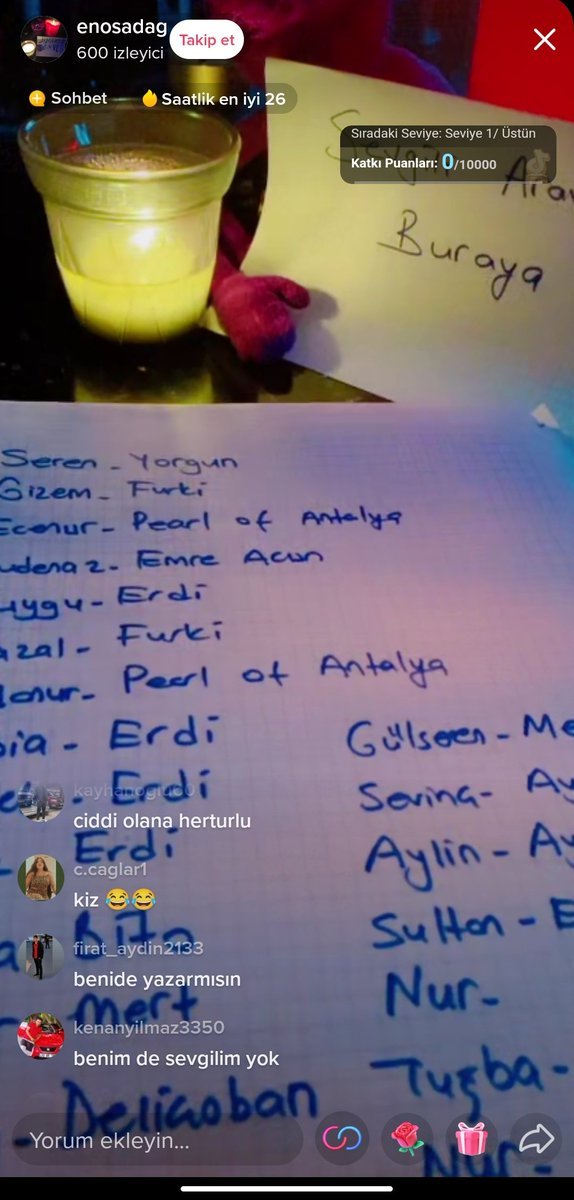 enosadag
600 izleyici
Takip et
Sohbet
Saatlik en iyi 26
Sıradaki Seviye: Seviye 1/ Üstün
Katkı Puanları: 0/10000
Buraya
Seren - Yorgun
Gizem - Furki
Ecenur - Pearl of Antalya
Emre Acun
Erdi
Furki
Pearl of Antalya
Erdi
Erdi
Erdi
Mert
Delicoban
Gülseren - Me
Sevinç - Ay
Aylin - Ay
Sultan - E
Nur -
Tuğba -
Nur -
kayhanoglu60
ciddi olana herturlu
c.caglar1
kiz 😂😂
firat_aydin2133
benide yazarmısın
kenanyilmaz3350
benim de sevgilim yok
Yorum ekleyin...